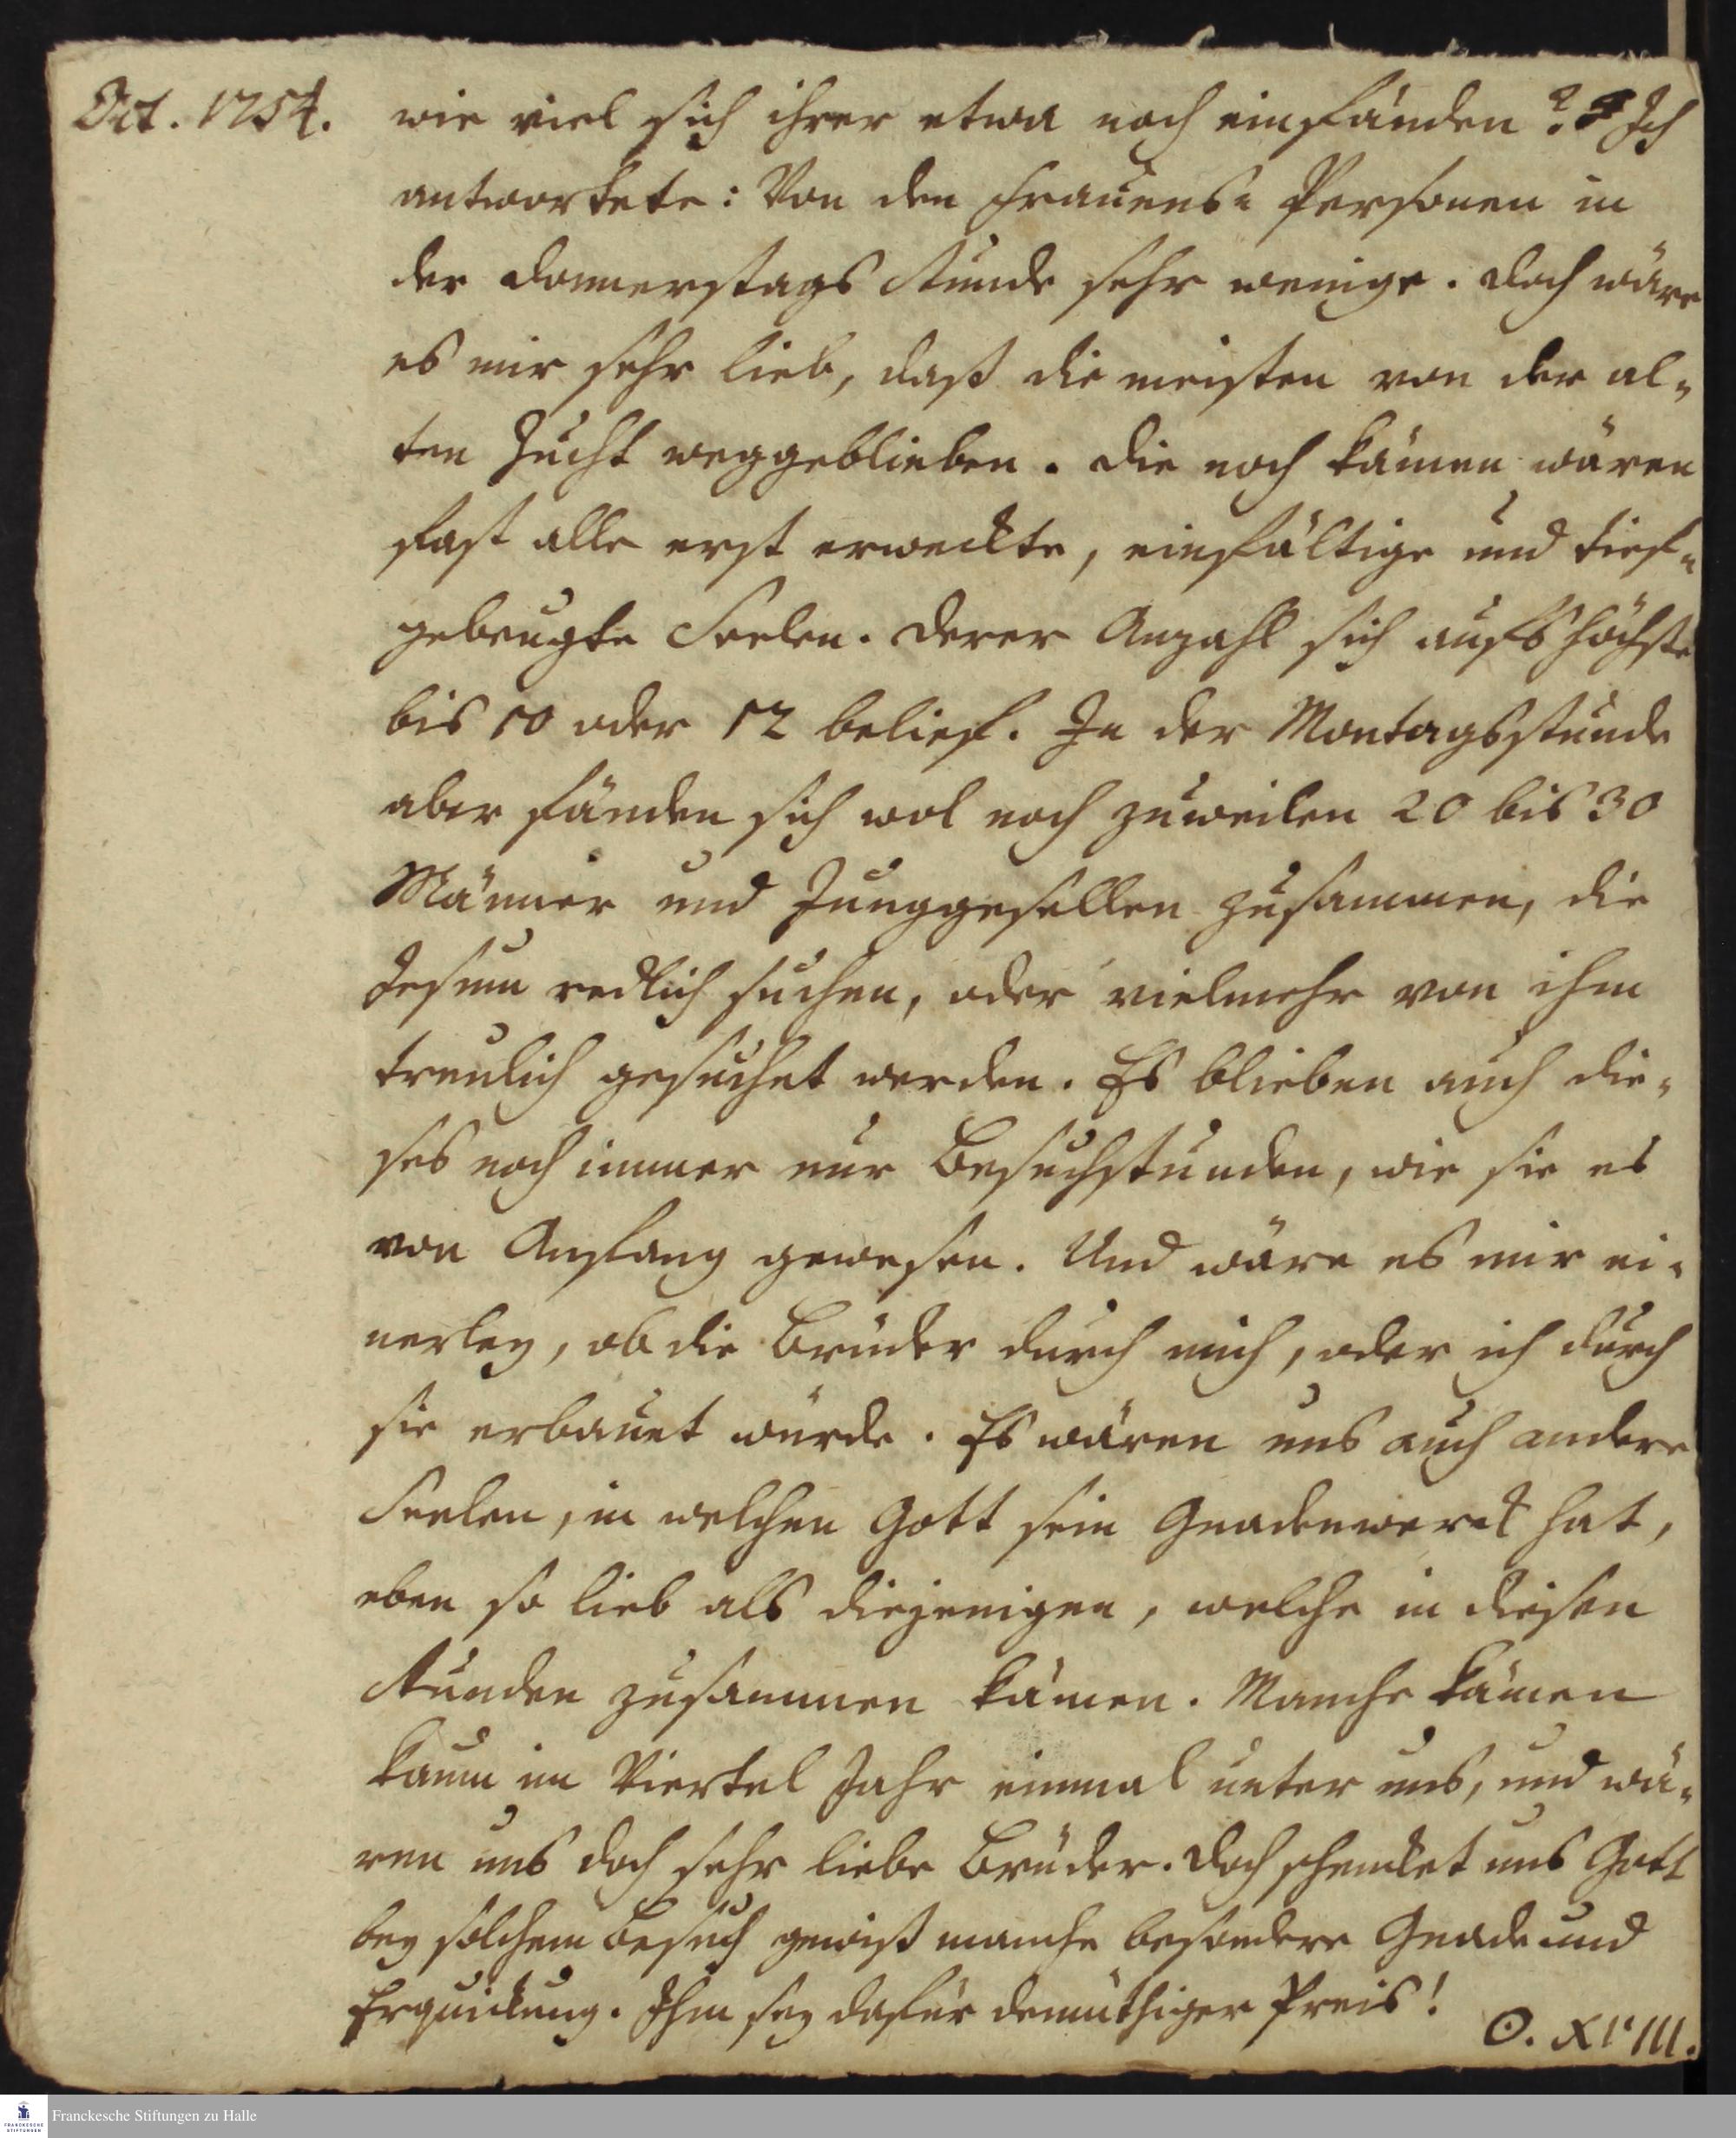 Oct. 1754.
wie viel sich ihrer etwa noch einfänden? Ich
antwortete: Von den Frauens- Personen in
der Donnerstags Stunde sehr wenige. Doch wäre
es mir sehr lieb, daß die meisten von der al-
ten Zucht weggeblieben. Die noch kämen wären
fast alle erst erweckte, einfältige und tief-
gebeugte Seelen. Derer Anzahl sich aufs höchste
bis 10 oder 12 belief. In der Montagsstunde
aber fänden sich wol noch zuweilen 20 bis 30
Männer und Junggesellen zusammen, die
Jesum redlich suchen, oder vielmehr von ihm
treulich gesuchet werden. Es blieben auch die-
ses noch immer nur Besuchstunden, wie sie es
von Anfang gewesen. Und wäre es mir ei-
nerley, ob die Brüder durch mich, oder ich durch
sie erbauet würde. Es wären uns auch andere
Seelen, in welchen Gott sein Gnadenwerck hat,
eben so lieb als diejenigen, welche in diesen
Stunden zusammen kämen. Manche kämen
kaum im Viertel Jahr einmal unter uns, und wä-
ren uns doch sehr liebe Brüder. Doch schencket uns Gott
bey solchem Besuch gewiß manche besondere Gnade und
Erquickung. Ihm sey dafür demüthiger Preis!
O. XVIII.
Franckesche Stiftungen zu Halle
FRANCKESCHE
STIFTUNGEN